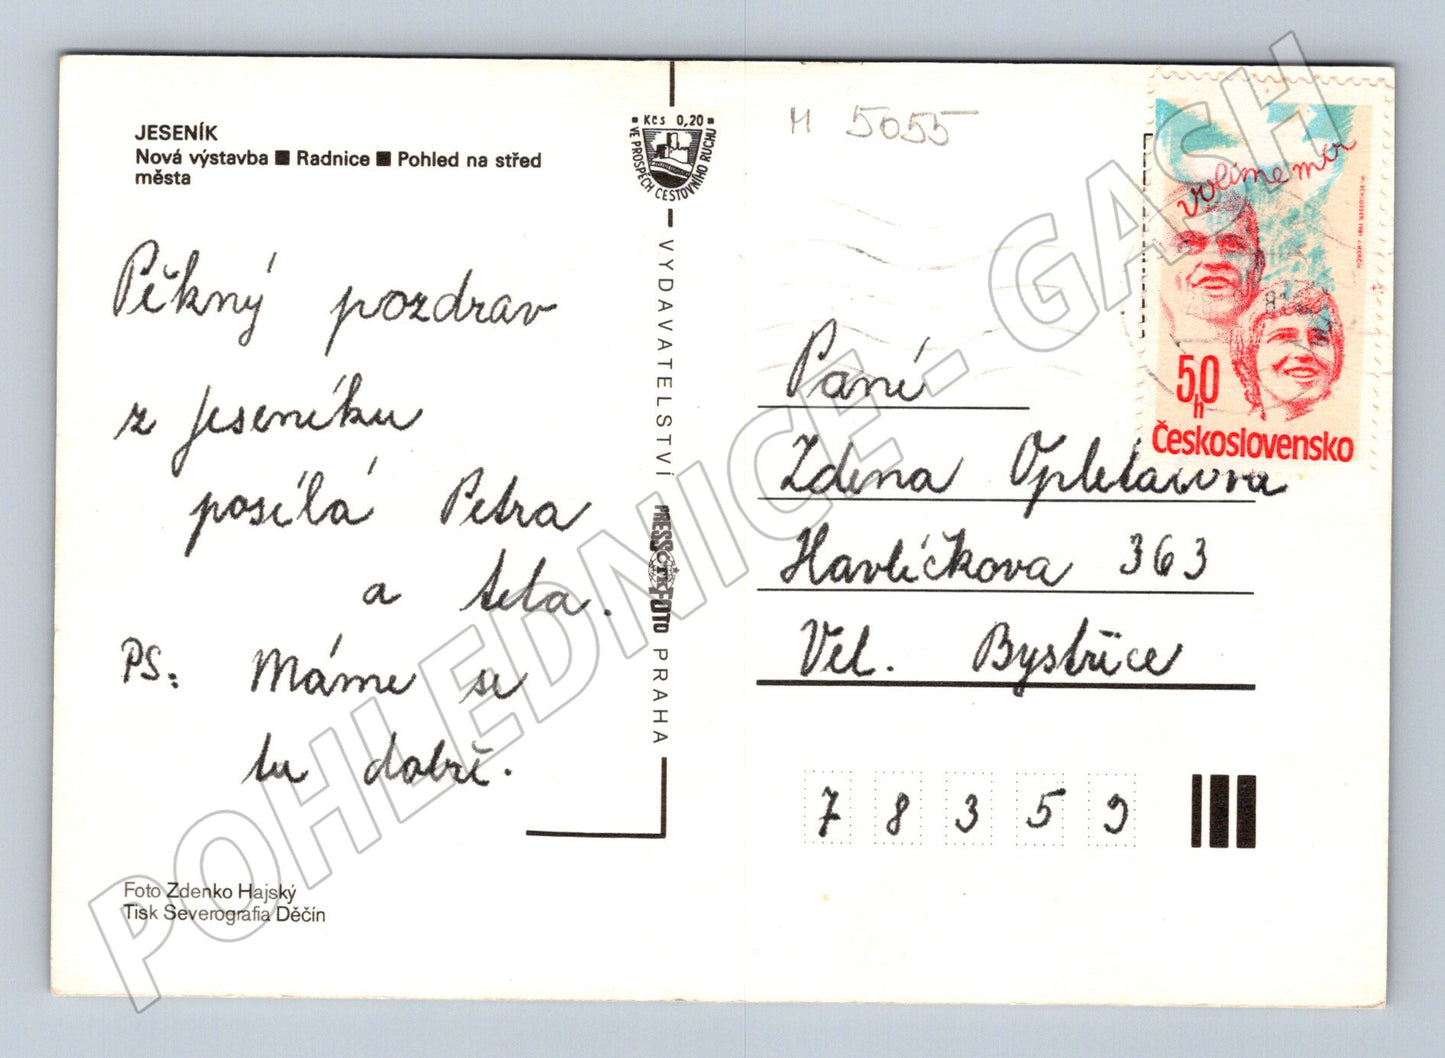 JESENÍK
Nová výstavba ■ Radnice ■ Pohled na střed
města
Pěkný pozdrav
z Jeseníku
posílá Petra
a teta.
PS: Máme se
tu dobře.
Foto Zdenko Hajský
Tisk Severografia Děčín
Kčs 0,20
VE PROSPĚCH CESTOVNÍHO RUCHU
VYDAVATELSTVÍ
PRESSFOTO
ČTK
PRAHA
M 5055
volíme mír
50
h
Československo
Paní
Zdena Opletalová
Havlíčkova 363
Vel. Bystřice
78359
POHLEDNICE - GASH